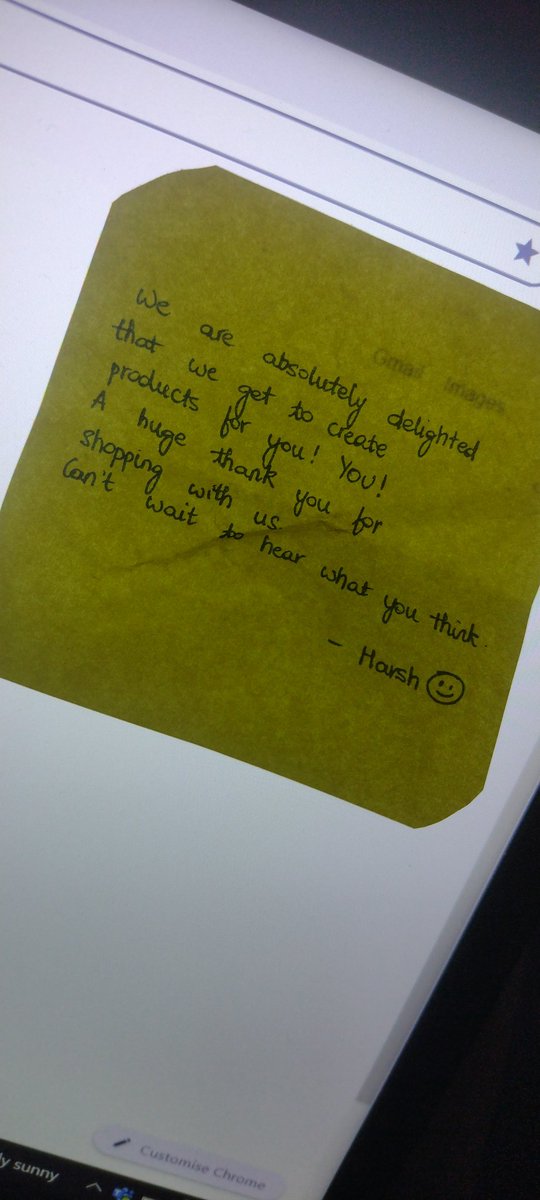 Gmail Images
We are absolutely delighted
that we get to create
products for you! You!
A huge thank you for
shopping with us.
Can't wait to hear what you think.
- Harsh
Customise Chrome
ly sunny